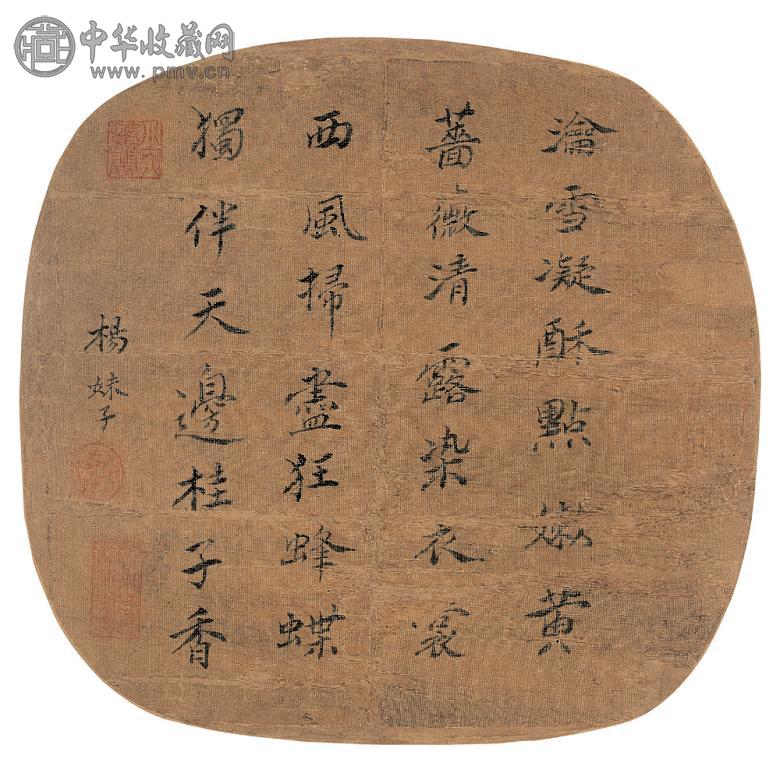 中华收藏网
www.pmv.cn
瀹雪凝酥點嫩黄
薔薇清露染衣裳
西風掃盡狂蜂蝶
獨伴天邊桂子香
楊妹子